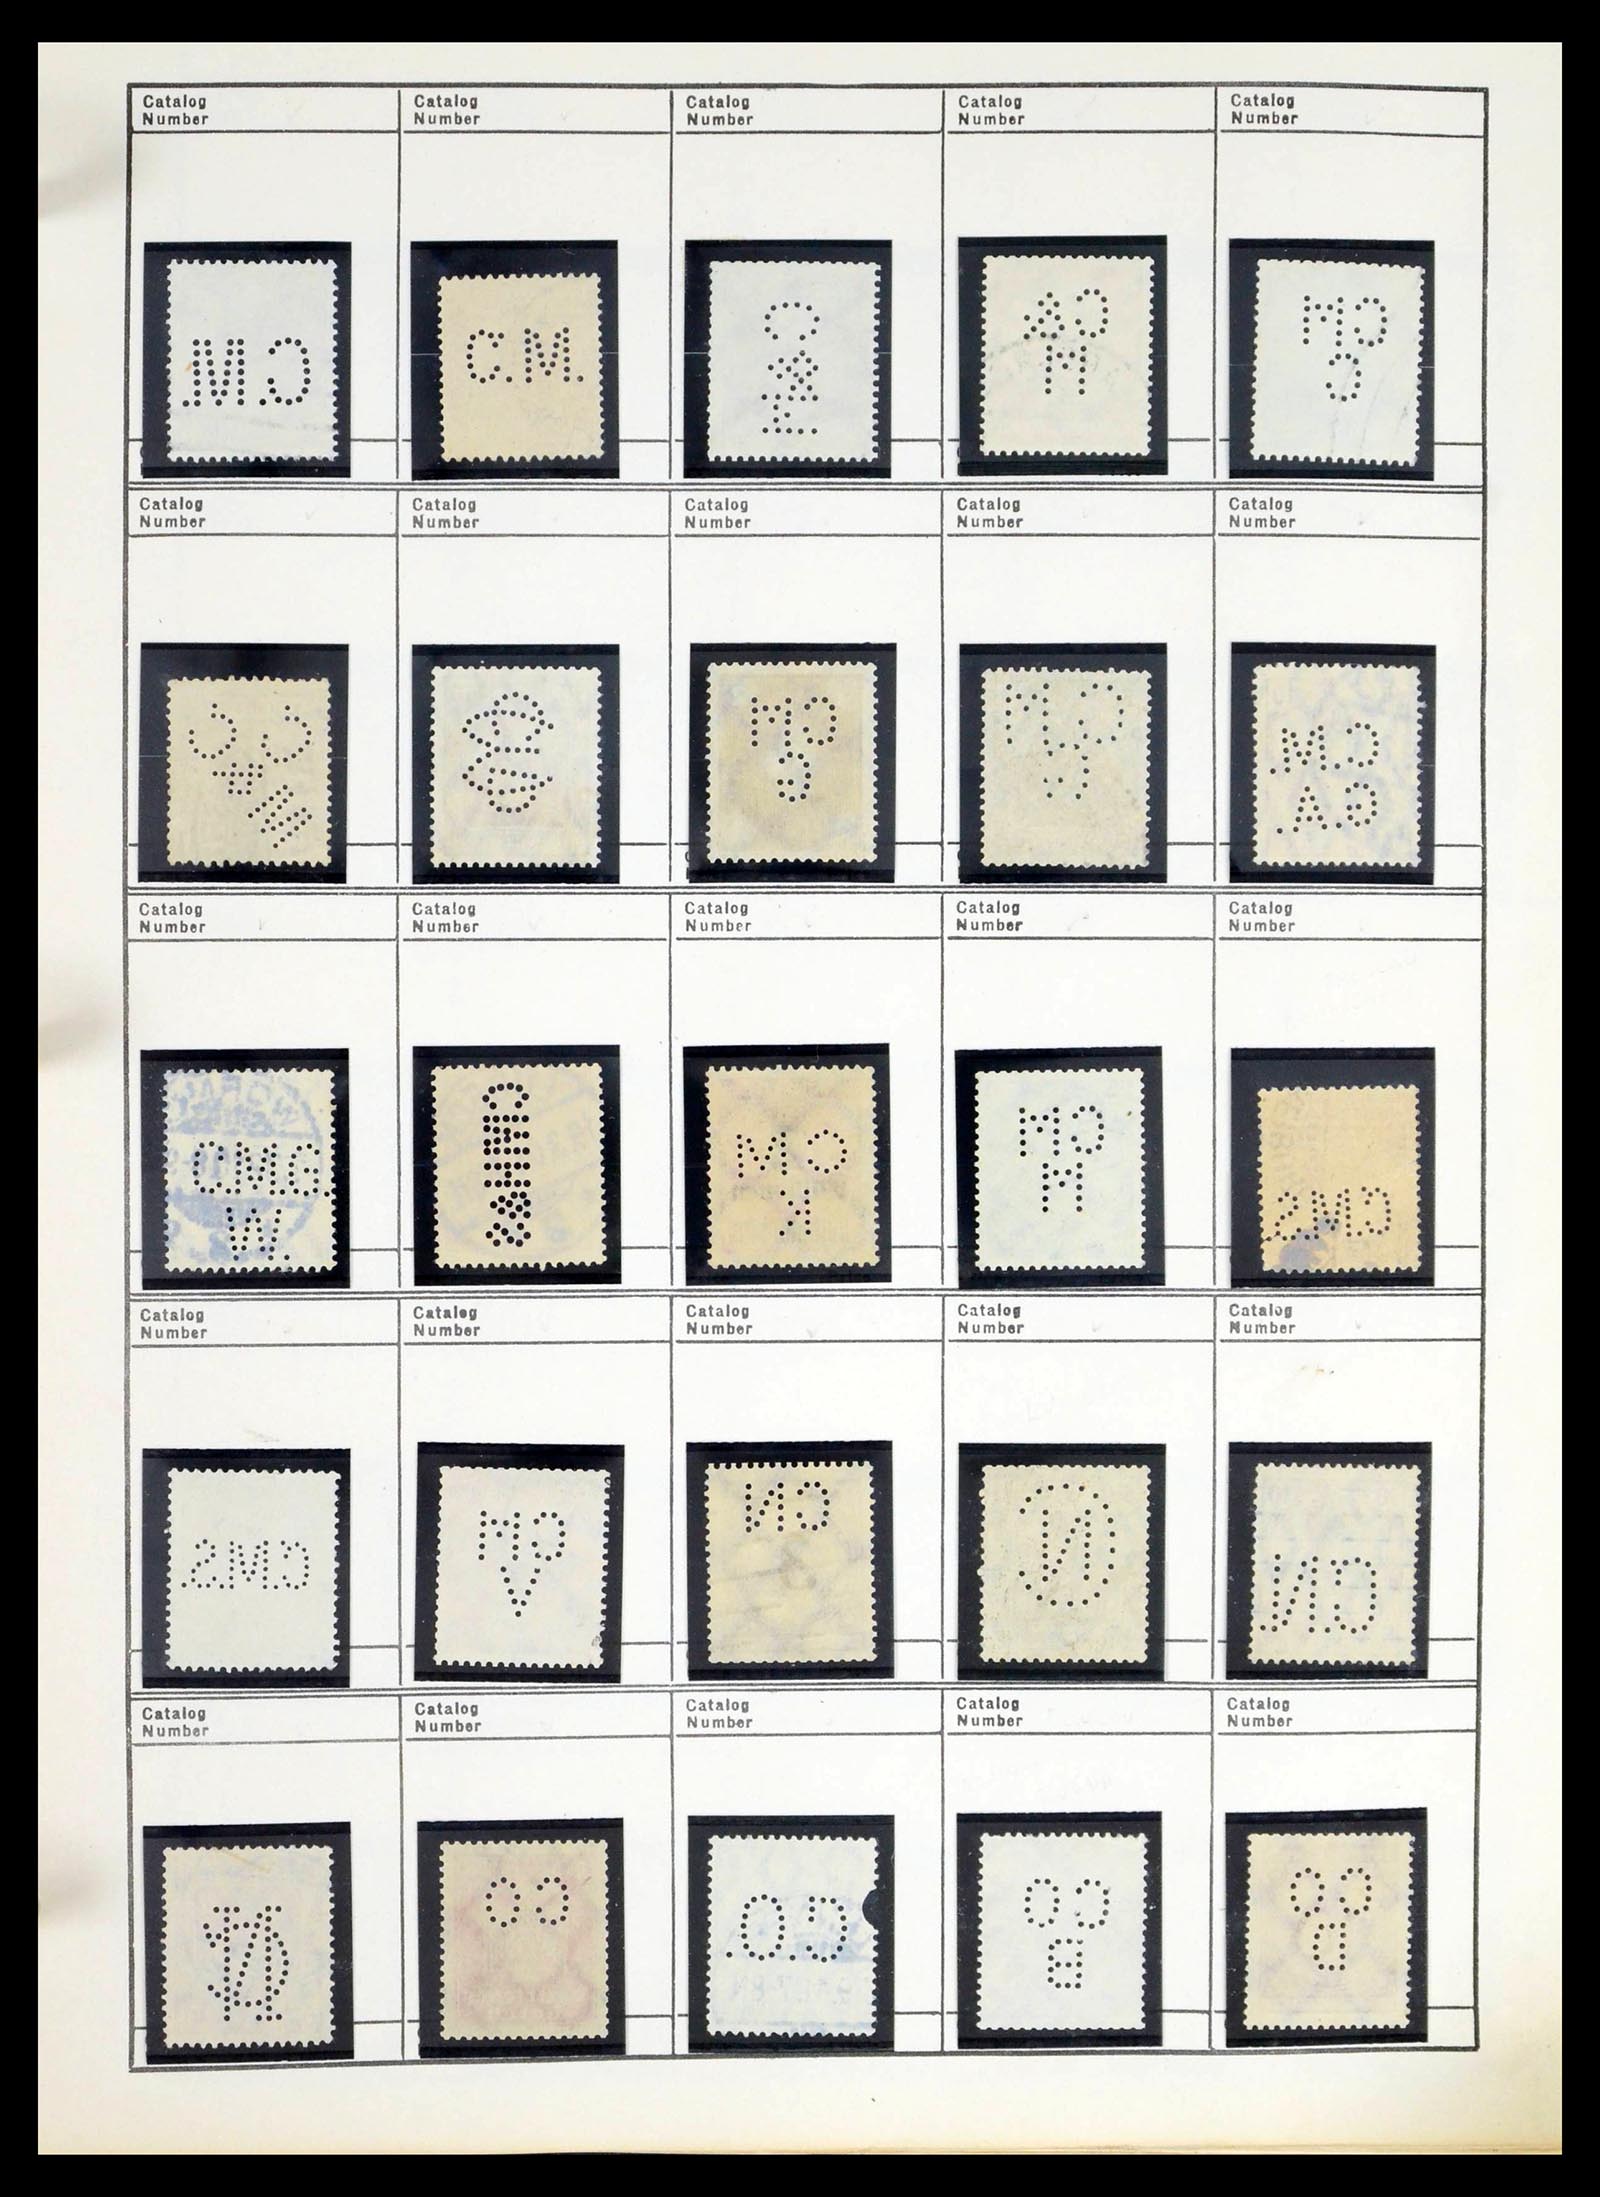 Catalog Number
Catalog Number
Catalog Number
Catalog Number
Catalog Number
C.M.
C.M.
C
&
CA
M
CM
C
Catalog Number
Catalog Number
Catalog Number
Catalog Number
Catalog Number
CM
G
C.M.
G.A.
Catalog Number
Catalog Number
Catalog Number
Catalog Number
Catalog Number
C.M.G.
W.
CM
K
CM
M
CMS
Catalog Number
Catalog Number
Catalog Number
Catalog Number
Catalog Number
C.M.S.
CM
V
CN
CN
CN
Catalog Number
Catalog Number
Catalog Number
Catalog Number
Catalog Number
CO
C.O.
CO
B
CO
D